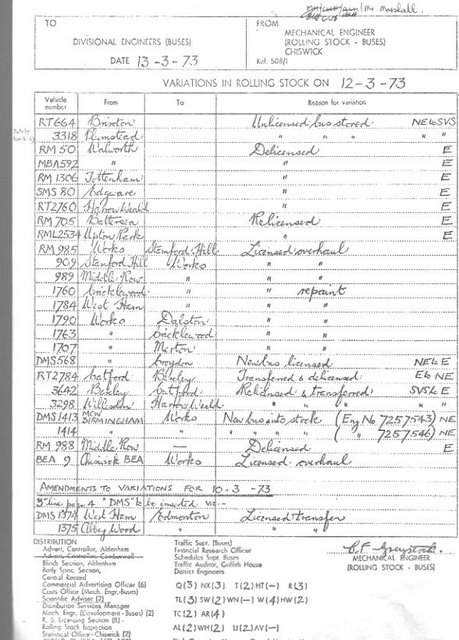 Mr Marshall.
TO
DIVISIONAL ENGINEERS (BUSES)
DATE 13-3-73
FROM
MECHANICAL ENGINEER
(ROLLING STOCK - BUSES)
CHISWICK
Ref. 508/1
VARIATIONS IN ROLLING STOCK ON 12-3-73
Vehicle number From To Reason for variation
RT664 Brixton Unlicensed bus stored NE to SVS
3318 Plumstead " " " " "
RM 50 Walworth Delicensed E
MBA592 " " E
RM 1306 Tottenham " E
SMS 80 Edgware " E
RT2760 Harrow Weald " E
RM 705 Battersea Relicensed E
RML2534 Upton Park " E
RM 985 Works Stamford Hill Licensed overhaul
909 Stamford Hill Works " "
989 Middle Row " " "
1760 Cricklewood " " repaint
1784 West Ham " " "
1790 Works Dalston " "
1763 " Cricklewood " "
1707 " Merton " "
DMS568 " Croydon New bus licensed NE to E
RT2784 Catford Bexley Transferred & delicensed E to NE
3642 Bexley Catford Relicensed & transferred SVS to E
3298 Willesden Harrow Weald " " " "
DMS 1413 MCW BIRMINGHAM Works New bus into stock (Eng No 7257543) NE
1414 " " " " " " ( " " 7257546) NE
RM 988 Middle Row — Delicensed E
BEA 9 Chiswick BEA Works Licensed overhaul
AMENDMENTS TO VARIATIONS FOR 10-3-73
DMS 1374 West Ham Edmonton Licensed transfer
1375 Abbey Wood " " "
DISTRIBUTION
Advert. Controller, Aldenham
Block Section, Aldenham
Body Spec. Section,
Central Record
Commercial Advertising Officer (6)
Costs Office (Mech. Engr.-Buses)
Scientific Adviser (2)
Distribution Services Manager
Mech. Engr. (Development - Buses) (2)
R. S. Licensing Section (8)
Rolling Stock Inspection
Statistical Office - Chiswick (2)
Traffic Supt. (Buses)
Financial Research Officer
Schedules Supt. Buses
Traffic Auditor, Griffith House
District Engineers
Q(3) NX(3) T(2) HT(-) R(3)
TL(3) SW(2) WN(-) W(4) HW(2)
TC(2) AR(4)
AL(2) WH(2) U(2) AV(-)
MECHANICAL ENGINEER
(ROLLING STOCK - BUSES)